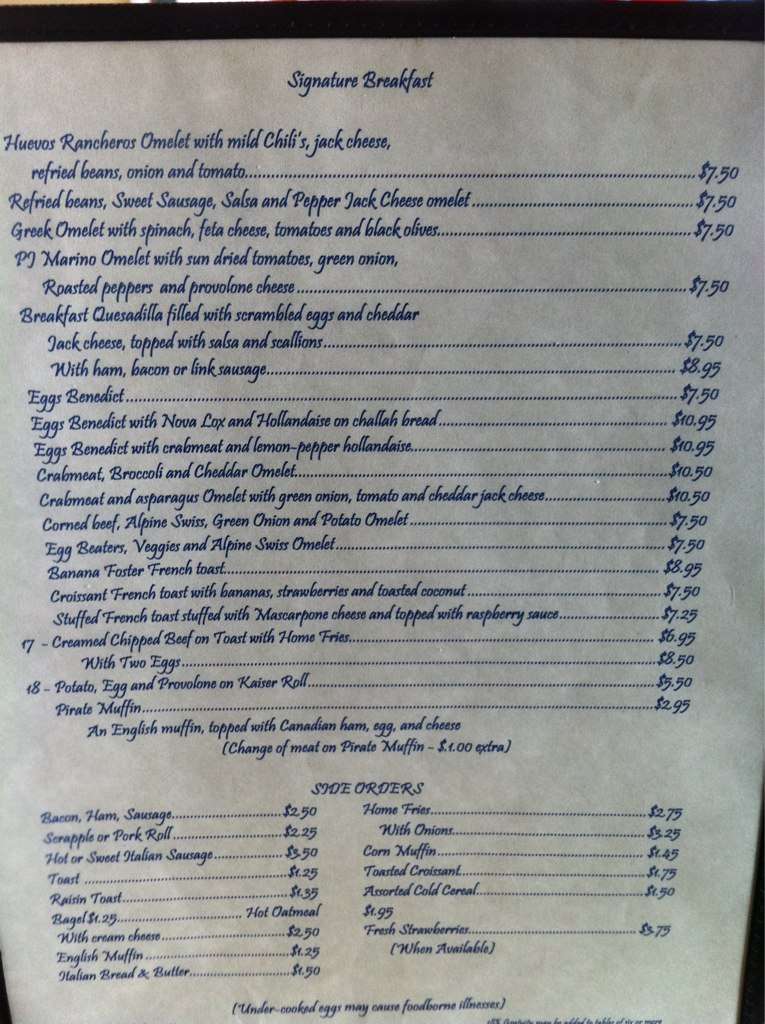 Signature Breakfast
Huevos Rancheros Omelet with mild Chili's, jack cheese,
refried beans, onion and tomato.......... $7.50
Refried beans, Sweet Sausage, Salsa and Pepper Jack Cheese omelet.......... $7.50
Greek Omelet with spinach, feta cheese, tomatoes and black olives.......... $7.50
PJ Marino Omelet with sun dried tomatoes, green onion,
Roasted peppers and provolone cheese.......... $7.50
Breakfast Quesadilla filled with scrambled eggs and cheddar
Jack cheese, topped with salsa and scallions.......... $7.50
With ham, bacon or link sausage.......... $8.95
Eggs Benedict.......... $7.50
Eggs Benedict with Nova Lox and Hollandaise on challah bread.......... $10.95
Eggs Benedict with crabmeat and lemon-pepper hollandaise.......... $10.95
Crabmeat, Broccoli and Cheddar Omelet.......... $10.50
Crabmeat and asparagus Omelet with green onion, tomato and cheddar jack cheese.......... $10.50
Corned beef, Alpine Swiss, Green Onion and Potato Omelet.......... $7.50
Egg Beaters, Veggies and Alpine Swiss Omelet.......... $7.50
Banana Foster French toast.......... $8.95
Croissant French toast with bananas, strawberries and toasted coconut.......... $7.50
Stuffed French toast stuffed with Mascarpone cheese and topped with raspberry sauce.......... $7.25
17 - Creamed Chipped Beef on Toast with Home Fries.......... $6.95
With Two Eggs.......... $8.50
18 - Potato, Egg and Provolone on Kaiser Roll.......... $5.50
Pirate Muffin.......... $2.95
An English muffin, topped with Canadian ham, egg, and cheese
(Change of meat on Pirate Muffin - $.1.00 extra)
SIDE ORDERS
Bacon, Ham, Sausage.......... $2.50
Scrapple or Pork Roll.......... $2.25
Hot or Sweet Italian Sausage.......... $3.50
Toast .......... $1.25
Raisin Toast.......... $1.35
Bagel $1.25.......... Hot Oatmeal
With cream cheese.......... $2.50
English Muffin.......... $1.25
Italian Bread & Butter.......... $1.50
Home Fries.......... $2.75
With Onions.......... $3.25
Corn Muffin.......... $1.45
Toasted Croissant.......... $1.75
Assorted Cold Cereal.......... $1.50
$1.95
Fresh Strawberries.......... $3.75
(When Available)
(Under-cooked eggs may cause foodborne illnesses)
18% Gratuity may be added to tables of six or more